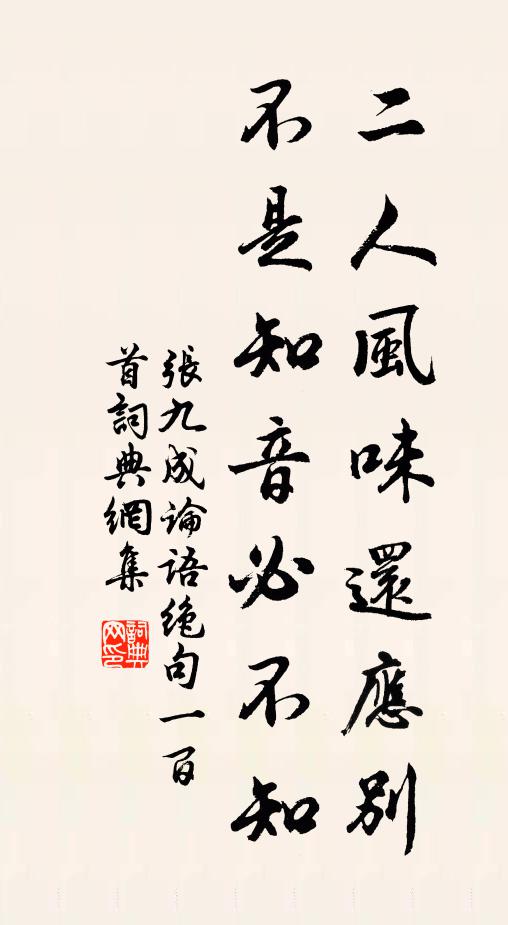 二人風味還應別
不是知音必不知
張九成論語绝句一百
首詞典網集
詞典网印